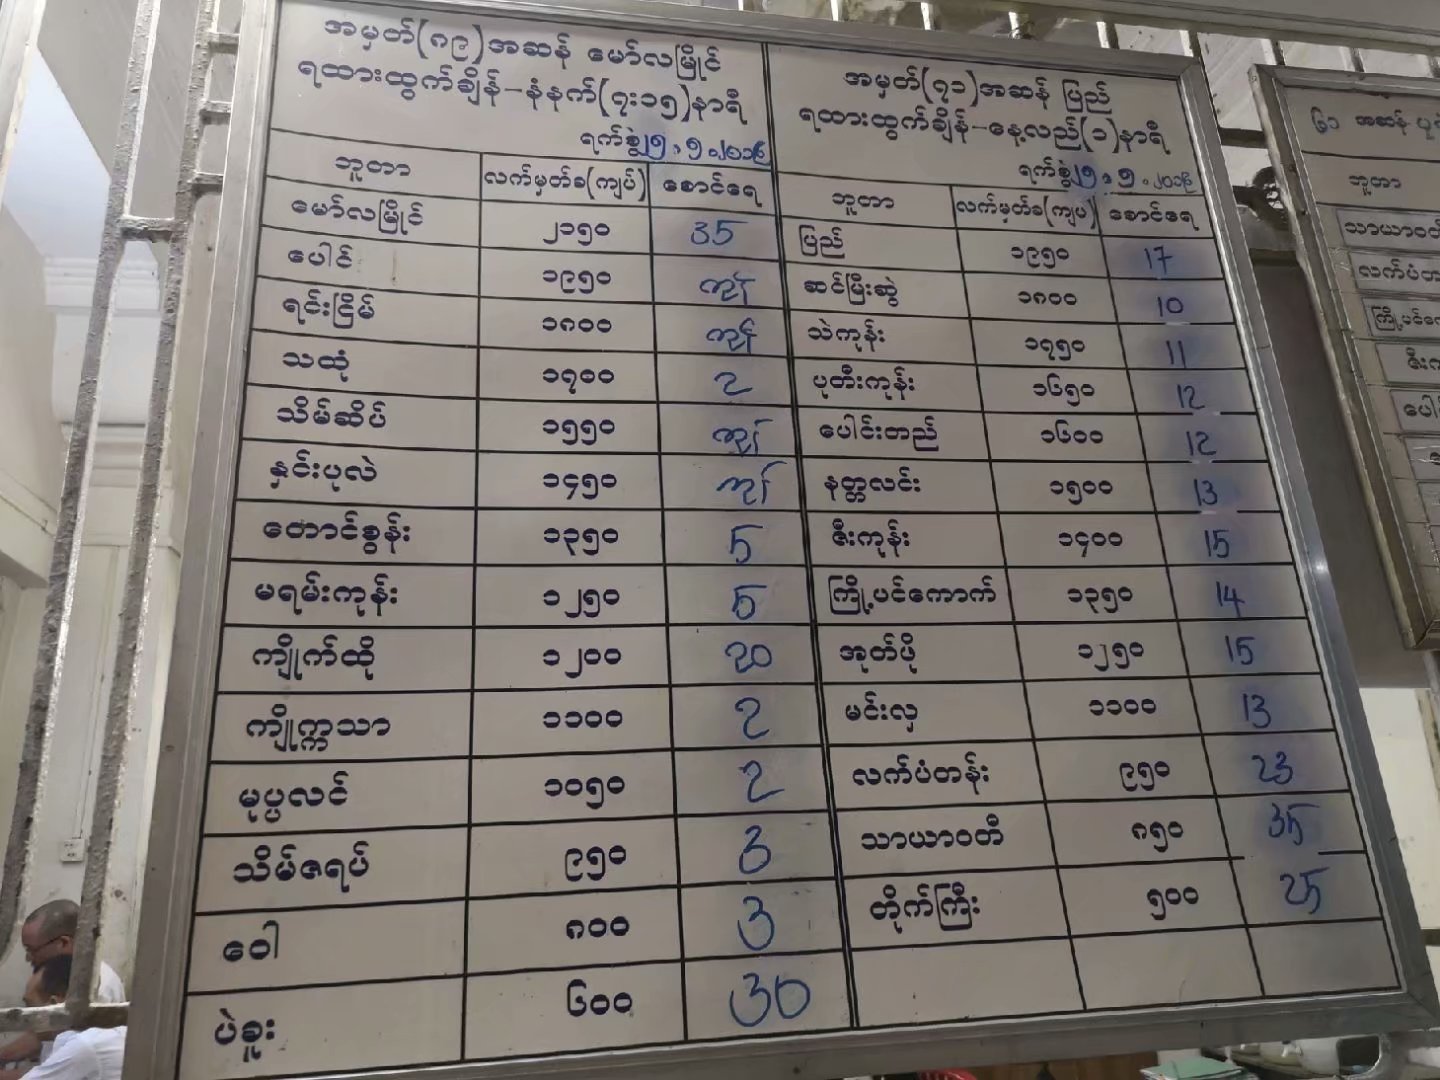 အမှတ်(၈၉)အဆန် မော်လမြိုင်
ရထားထွက်ချိန်-နံနက်(၇း၁၅)နာရီ
ရက်စွဲ
ဘူတာ လက်မှတ်ခ(ကျပ်) စောင်ရေ
မော်လမြိုင် ၂၁၅၀ 35
ပေါင် ၁၉၅၀ ကုန်
ရင်းငြိမ် ၁၈၀၀ ကုန်
သထုံ ၁၇၀၀ 2
သိမ်ဆိပ် ၁၅၅၀ ကုန်
နှင်းပုလဲ ၁၄၅၀ ကုန်
တောင်စွန်း ၁၃၅၀ 5
မရမ်းကုန်း ၁၂၅၀ 5
ကျိုက်ထို ၁၂၀၀ 20
ကျိုက္ကသာ ၁၁၀၀ 2
မုပ္ပလင် ၁၀၅၀ 2
သိမ်ဇရပ် ၉၅၀ 3
ဝေါ ၈၀၀ 3
ပဲခူး ၆၀၀ 30
အမှတ်(၇၁)အဆန် ပြည်
ရထားထွက်ချိန်-နေ့လည်(၁)နာရီ
ရက်စွဲ
ဘူတာ လက်မှတ်ခ(ကျပ်) စောင်ရေ
ပြည် ၁၉၅၀ 17
ဆင်မြီးဆွဲ ၁၈၀၀ 10
သဲကုန်း ၁၇၅၀ 11
ပုတီးကုန်း ၁၆၅၀ 12
ပေါင်းတည် ၁၆၀၀ 12
နတ္တလင်း ၁၅၀၀ 13
ဇီးကုန်း ၁၄၀၀ 15
ကြို့ပင်ကောက် ၁၃၅၀ 14
အုတ်ဖို ၁၂၅၀ 15
မင်းလှ ၁၁၀၀ 13
လက်ပံတန်း ၉၅၀ 23
သာယာဝတီ ၈၅၀ 35
တိုက်ကြီး ၅၀၀ 25
၆၁ အဆန်
ဘူတာ